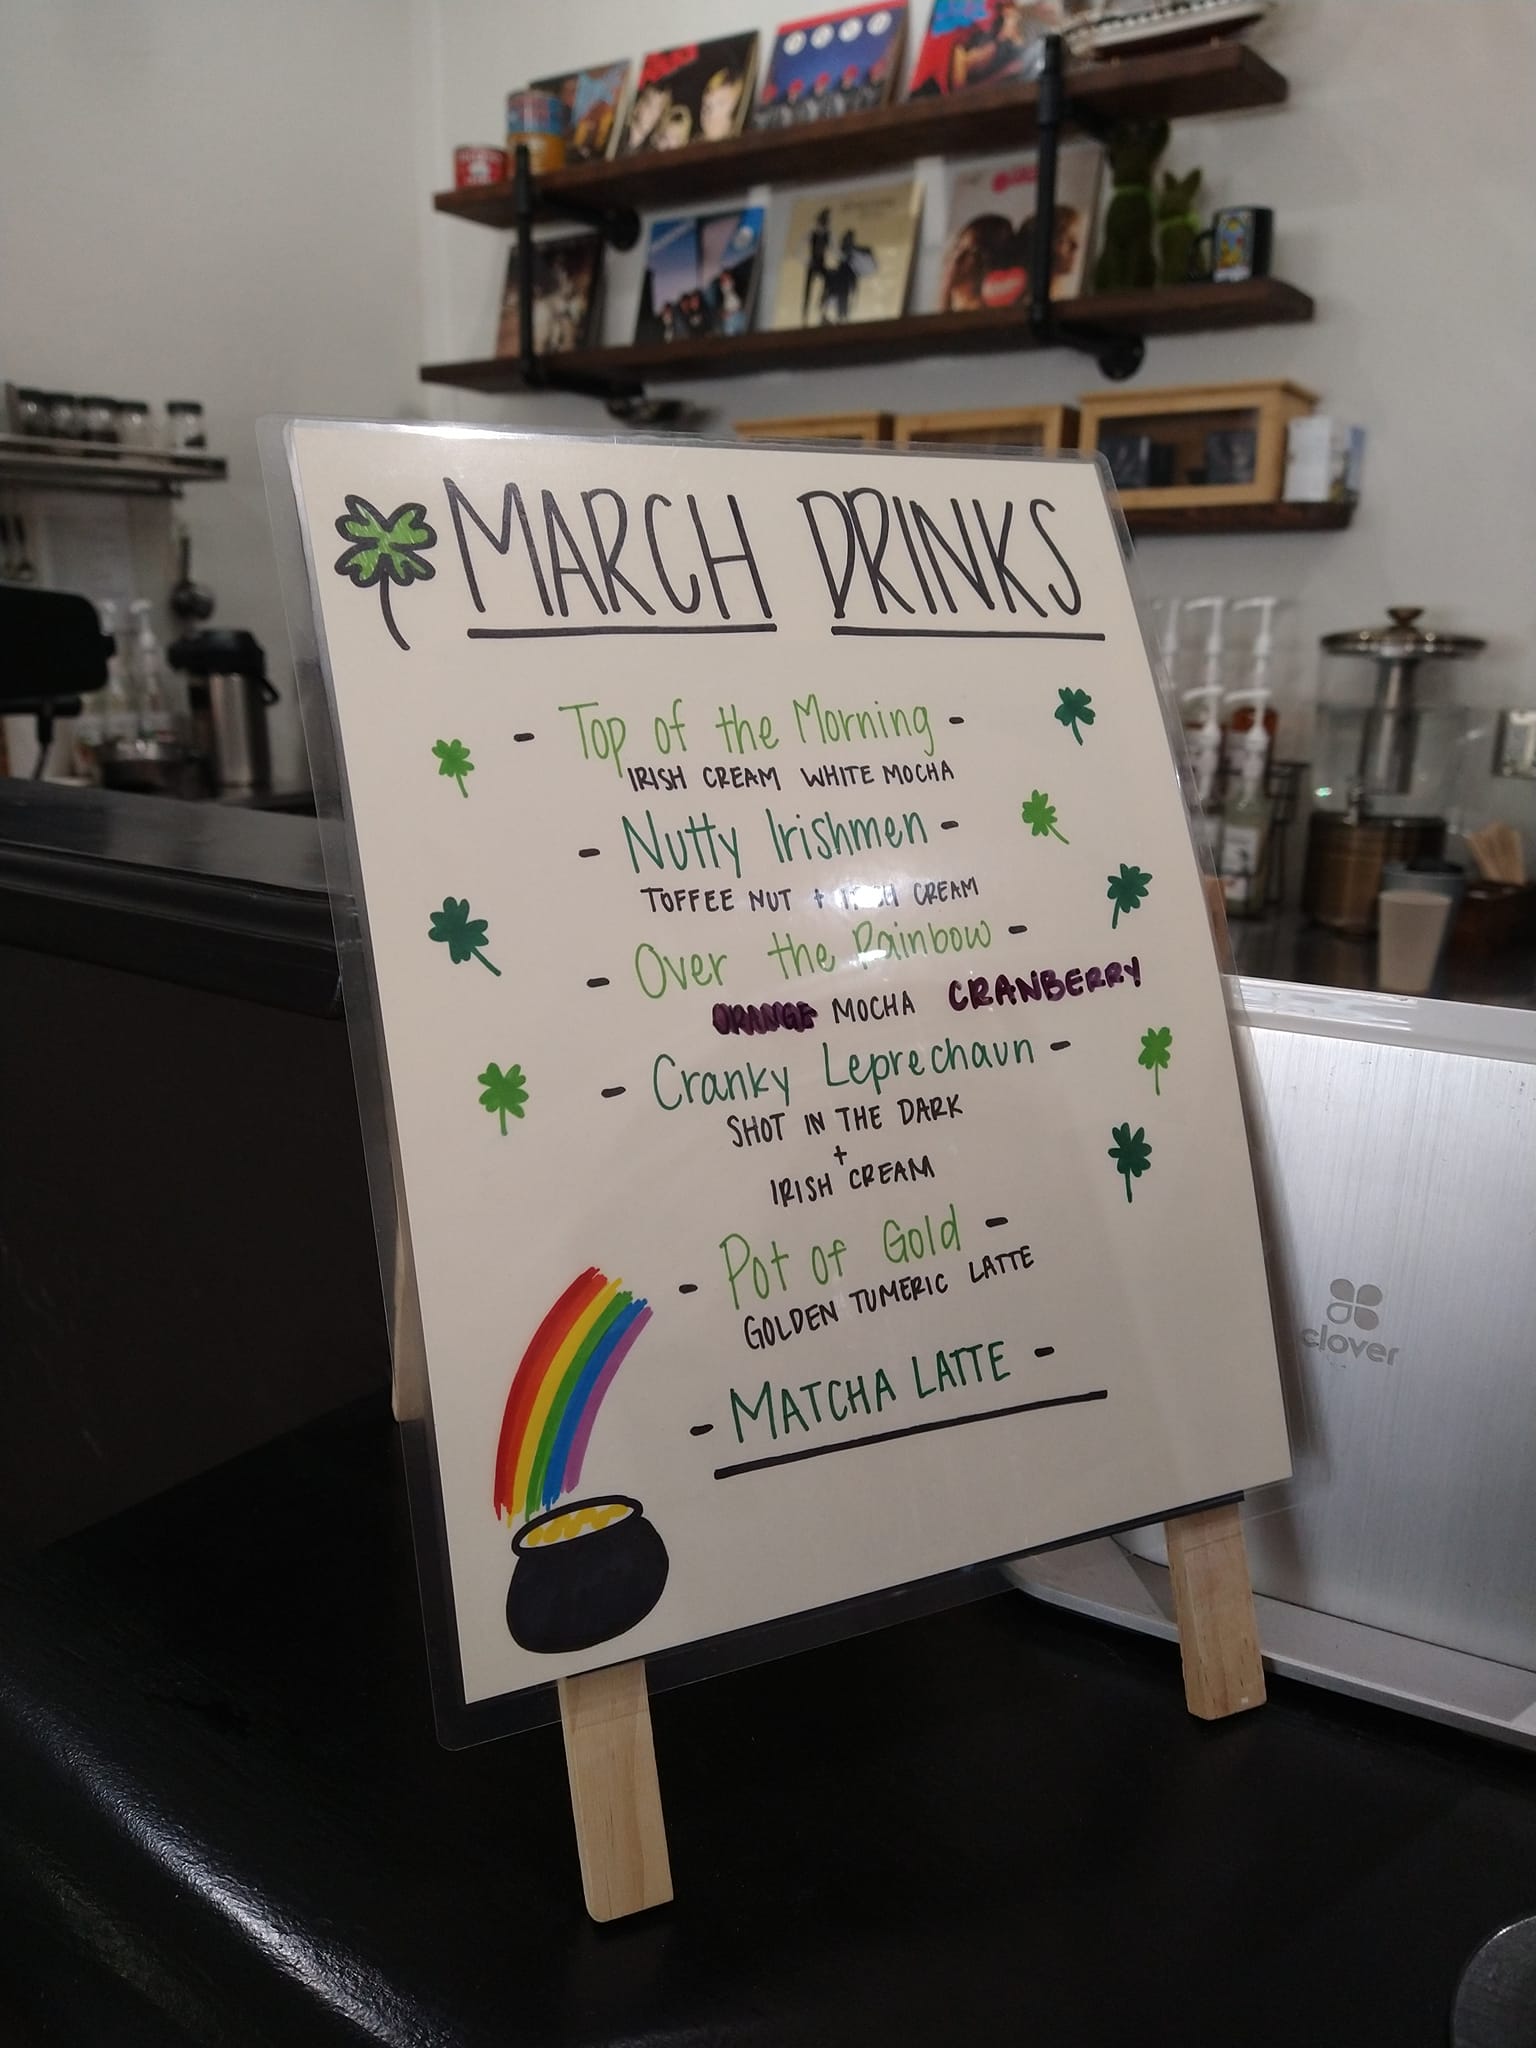 MARCH DRINKS
- Top of the Morning -
IRISH CREAM WHITE MOCHA
- Nutty Irishmen -
TOFFEE NUT + IRISH CREAM
- Over the Rainbow -
ORANGE MOCHA CRANBERRY
- Cranky Leprechaun -
SHOT IN THE DARK
+
IRISH CREAM
- Pot of Gold -
GOLDEN TUMERIC LATTE
- MATCHA LATTE -
clover